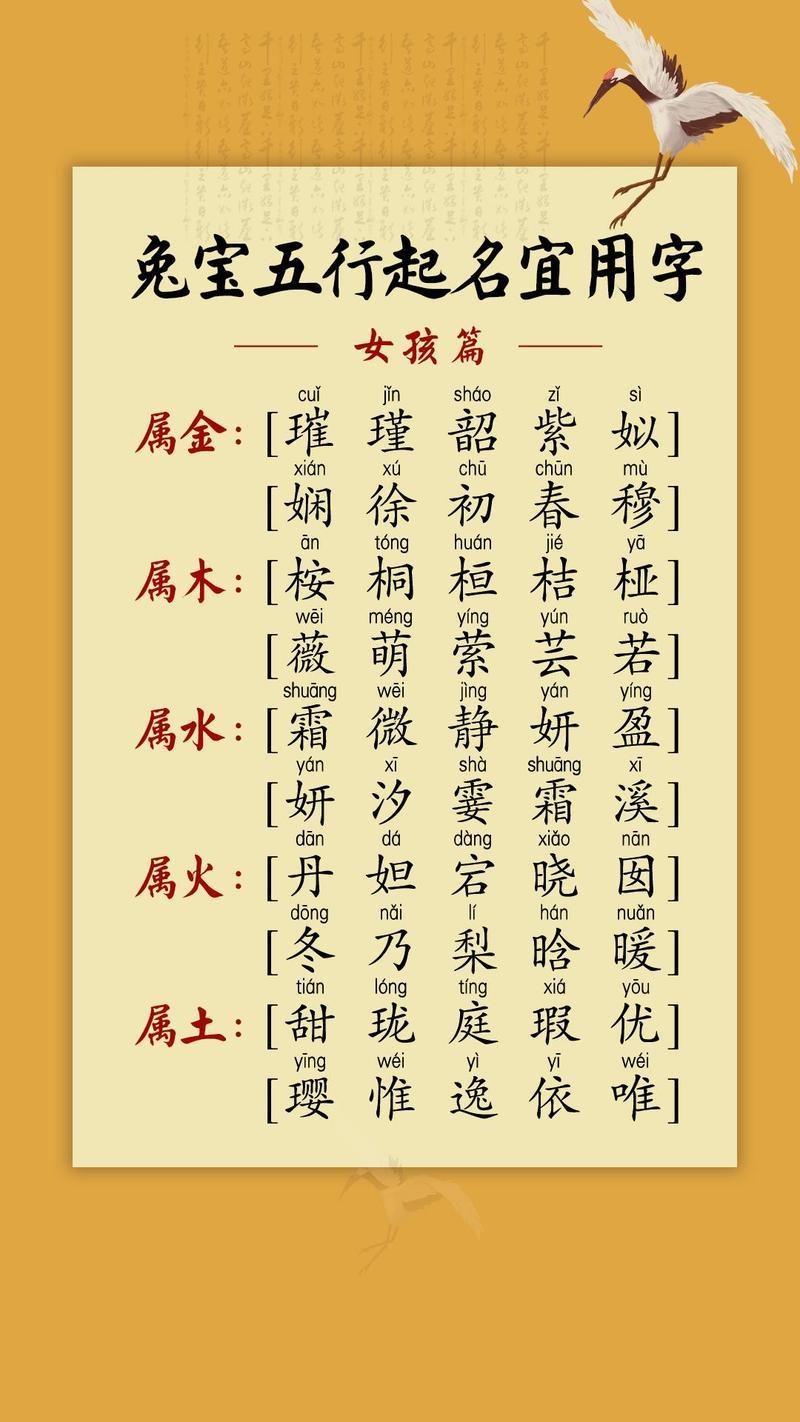 兔宝五行起名宜用字
女孩篇
cuǐ jǐn sháo zǐ sì
属金：[璀 瑾 韶 紫 姒]
xián xú chū chūn mù
[娴 徐 初 春 穆]
ān tóng huán jié yā
属木：[桉 桐 桓 桔 桠]
wēi méng yíng yún ruò
[薇 萌 萦 芸 若]
shuāng wēi jìng yán yíng
属水：[霜 微 静 妍 盈]
yán xī shà shuāng xī
[妍 汐 霎 霜 溪]
dān dá dàng xiǎo nān
属火：[丹 妲 宕 晓 囡]
dōng nǎi lí hán nuǎn
[冬 乃 梨 晗 暖]
tián lóng tíng xiá yōu
属土：[甜 珑 庭 瑕 优]
yīng wéi yì yī wéi
[璎 惟 逸 依 唯]